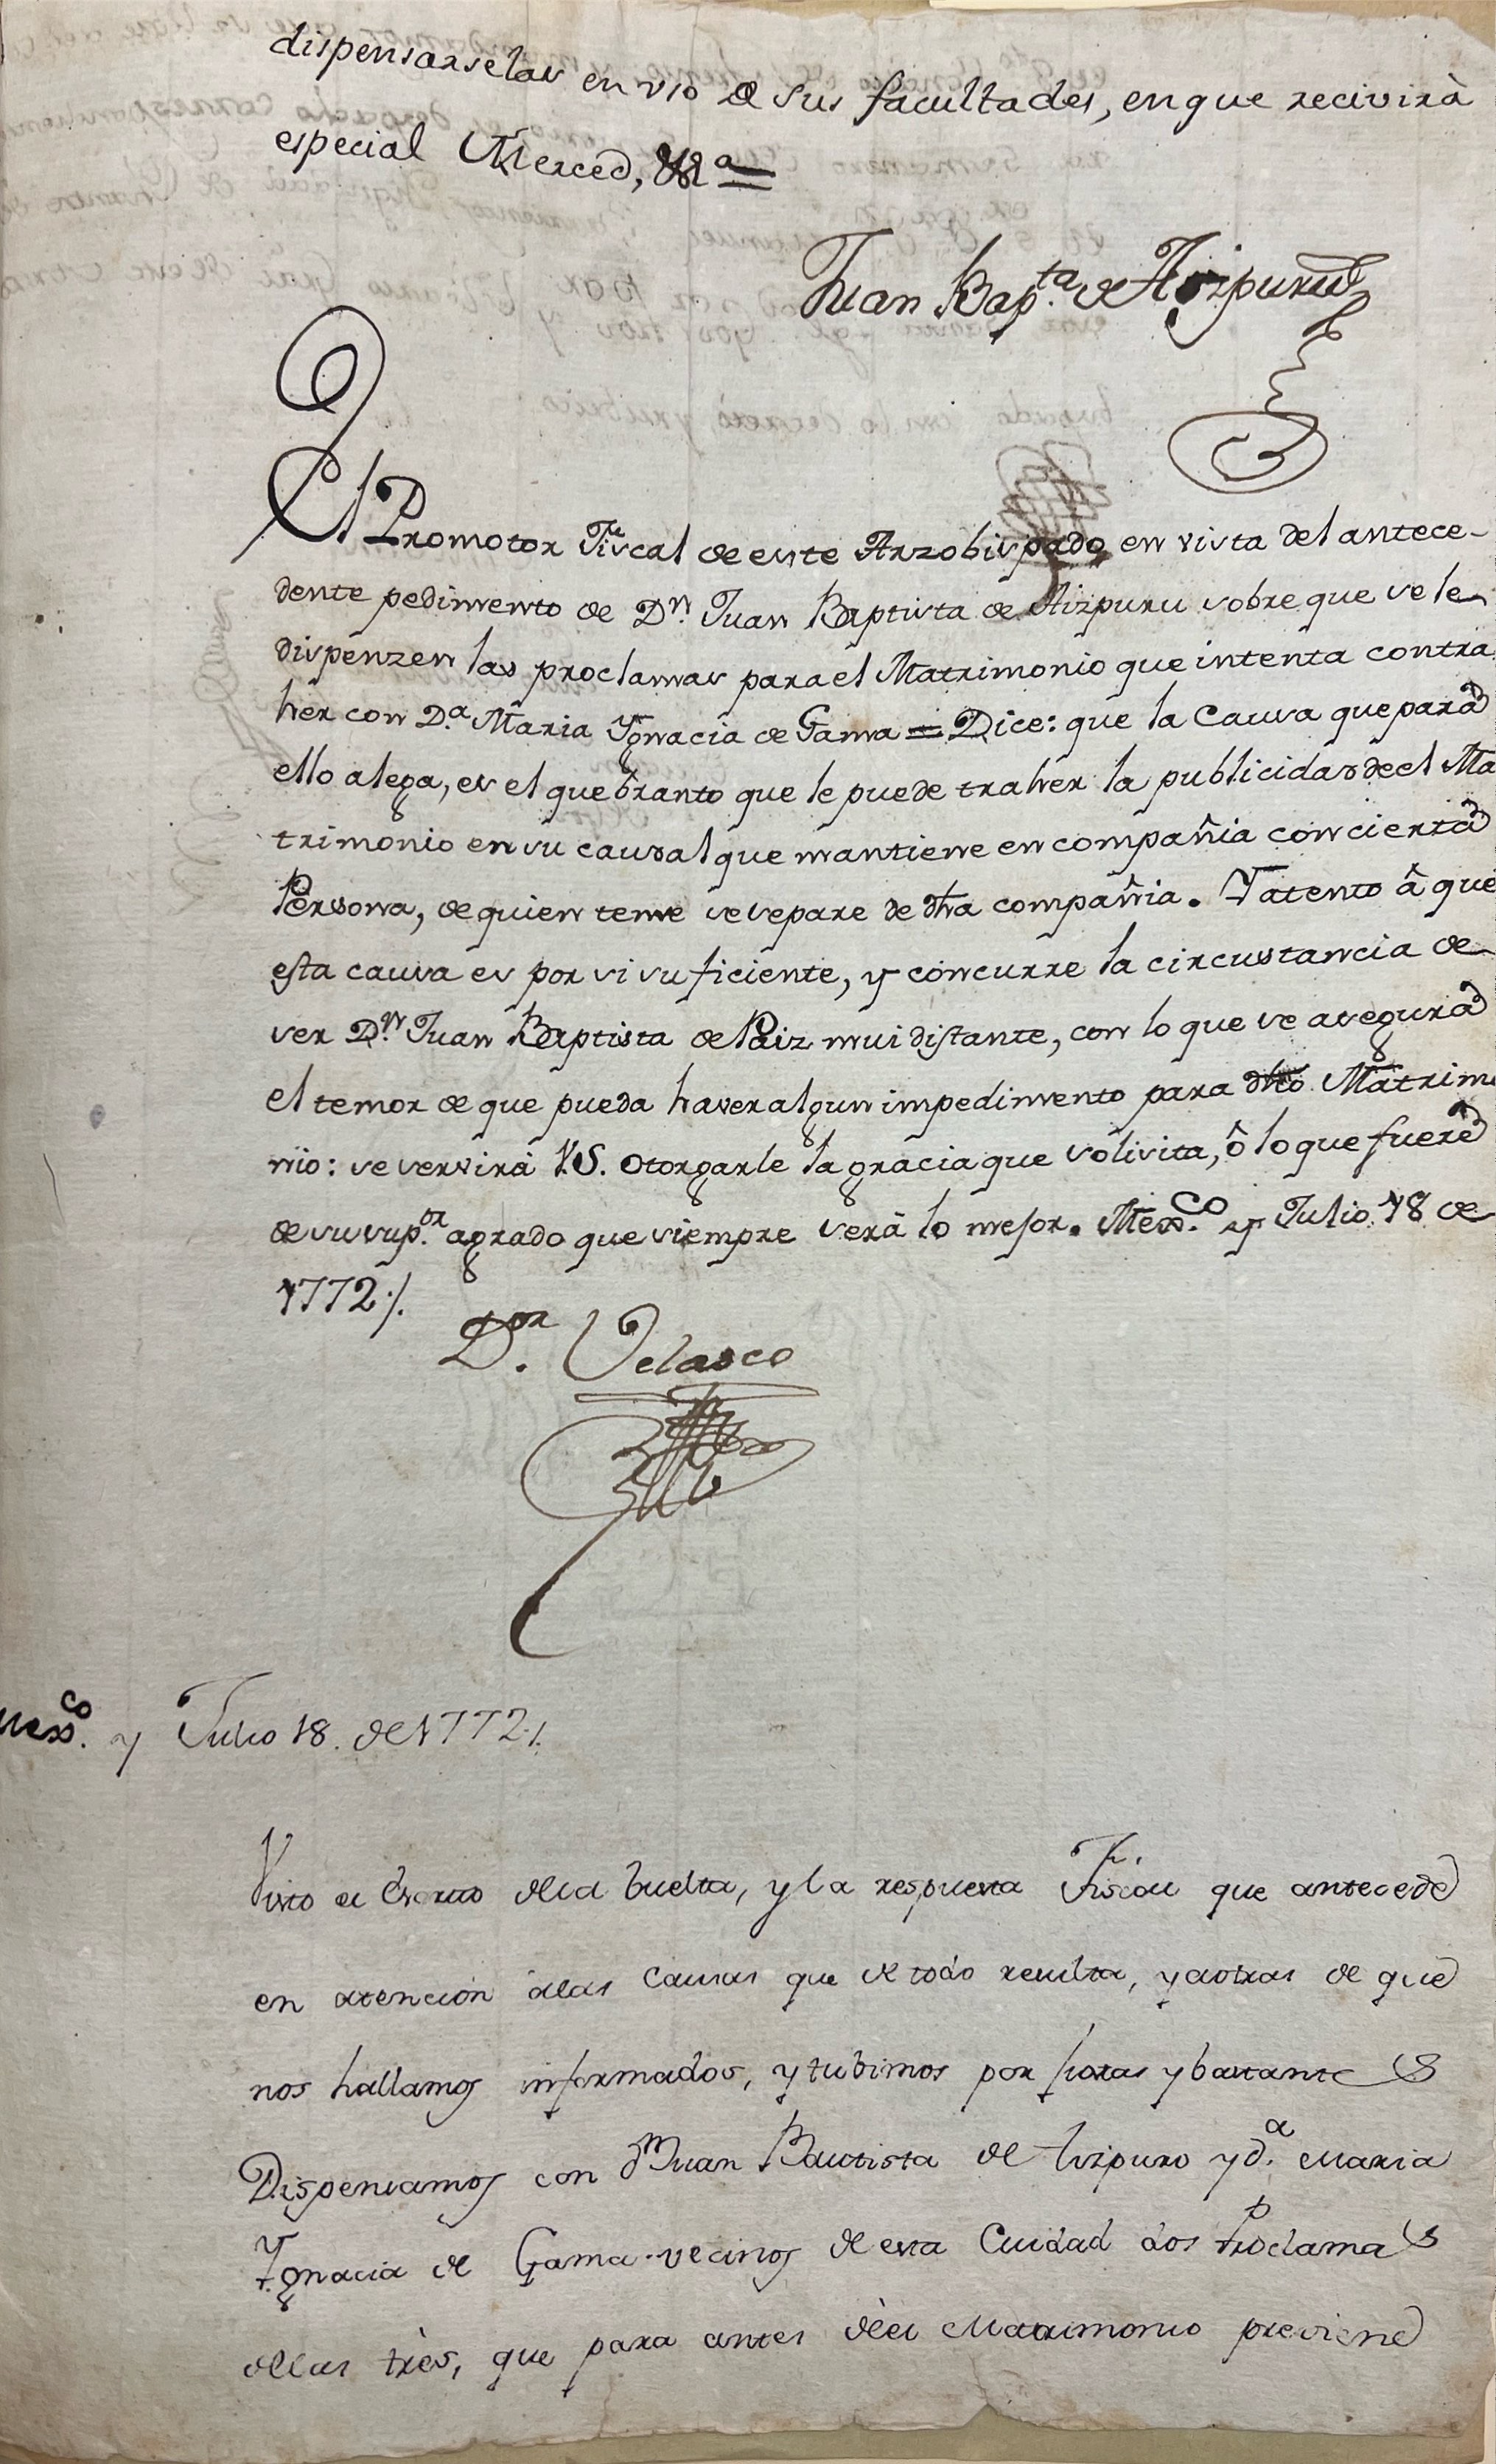 dispensarselas en vso de sus facultades, en que recivirà
especial Merced, &ª
Juan Bap.ta de Aizpuru
El Promotor Fiscal de este Arzobispado, en vista del antece-
dente pedimento de D.n Juan Baptista de Aizpuru sobre que se le
dispenzen las proclamas para el Matrimonio que intenta contra
her con D.a Maria Ygnacia de Gama = Dice: que la Causa que para
ello alega, es el quebranto que le puede traher la publicidad de el Ma
trimonio en su caudal que mantiene en compañia con cierta
Persona, de quien teme se separe de dha compañia. Y atento â que
esta causa es por si suficiente, y concurre la circustancia de
ser D.n Juan Baptista de Paiz mui distante, con lo que se asegura
el temor de que pueda haver algun impedimento para dho Matrimo
nio: se servirá V.S. otorgarle la gracia que solisita, ô lo que fuere
de su sup.or agrado que siempre será lo mejor. Mex.co y Julio 18 de
1772./.
D.or Velasco
Mex.co y Julio 18. de 1772./.
Visto el Escrito de la buelta, y la respuesta Fiscal que antecede
en atencion àlas Causas que de todo resulta, y a otras de que
nos hallamos informados, y tubimos por justas y bastantes
Dispensamos con D.n Juan Bautista de Aizpuro y D.a Maria
Ygnacia de Gama vecinos de esta Cuidad dos Proclamas
de las très, que para antes dèel Matrimonio previene